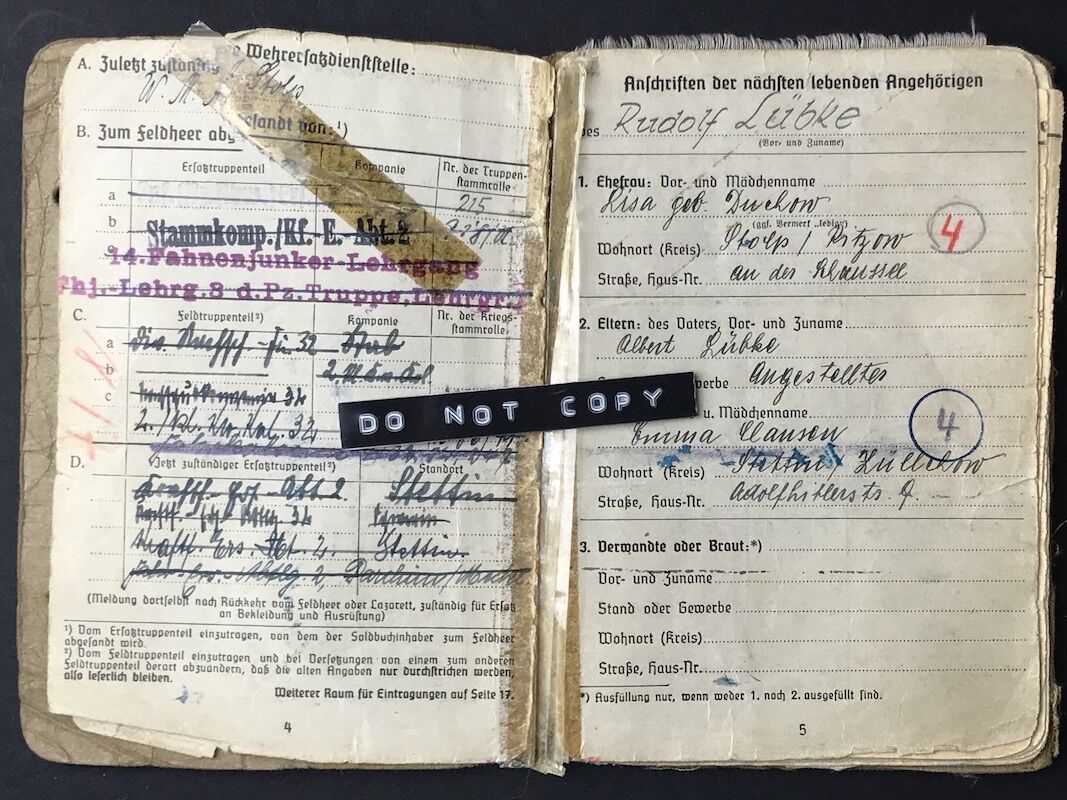 A. Zuletzt zuständig e Wehrersatzdienststelle:
Stolp
B. Zum Feldheer abg sandt von: ¹)
Ersatztruppenteil
Kompanie
Nr. der Truppen-
stammrolle
a
215
b
Stammkomp./Kf. E. Abt. 2
c
14. Fahnenjunker-Lehrgang
Fhj.-Lehrg. 8 d. Pz. Truppe, Lehrgr.
C.
Feldtruppenteil²)
Kompanie
Nr. der Kriegs-
stammrolle
a
Div. Nachsch.-Fü. 32 Stab
b
c
32
2./Kl. Kw. Kol. 32
D.
Jetzt zuständiger Ersatztruppenteil²)
Standort
Abt. 2 Stettin
Ers. Abt. 2. Stettin
2, Parchim
(Meldung dortselbst nach Rückkehr vom Feldheer oder Lazarett, zuständig für Ersatz
an Bekleidung und Ausrüstung)
¹) Vom Ersatztruppenteil einzutragen, von dem der Soldbuchinhaber zum Feldheer
abgesandt wird.
²) Vom Feldtruppenteil einzutragen und bei Versetzungen von einem zum anderen
Feldtruppenteil derart abzuändern, daß die alten Angaben nur durchstrichen werden,
also leserlich bleiben.
Weiterer Raum für Eintragungen auf Seite 17.
4
DO NOT COPY
Anschriften der nächsten lebenden Angehörigen
des Rudolf Lübke
(Vor- und Zuname)
1. Ehefrau: Vor- und Mädchenname
Lisa geb. Duchow
(ggf. Vermerk „ledig")
Wohnort (Kreis) Stolp / Ritzow
4
Straße, Haus-Nr. an der
2. Eltern: des Vaters, Vor- und Zuname
Albert Lübke
erbe Angestellter
u. Mädchenname
Emma Clausen
4
Wohnort (Kreis) Stettin Züllchow
Straße, Haus-Nr. Adolfhitlerstr.
3. Verwandte oder Braut:*)
Vor- und Zuname
Stand oder Gewerbe
Wohnort (Kreis)
Straße, Haus-Nr.
*) Ausfüllung nur, wenn weder 1. noch 2. ausgefüllt sind.
5